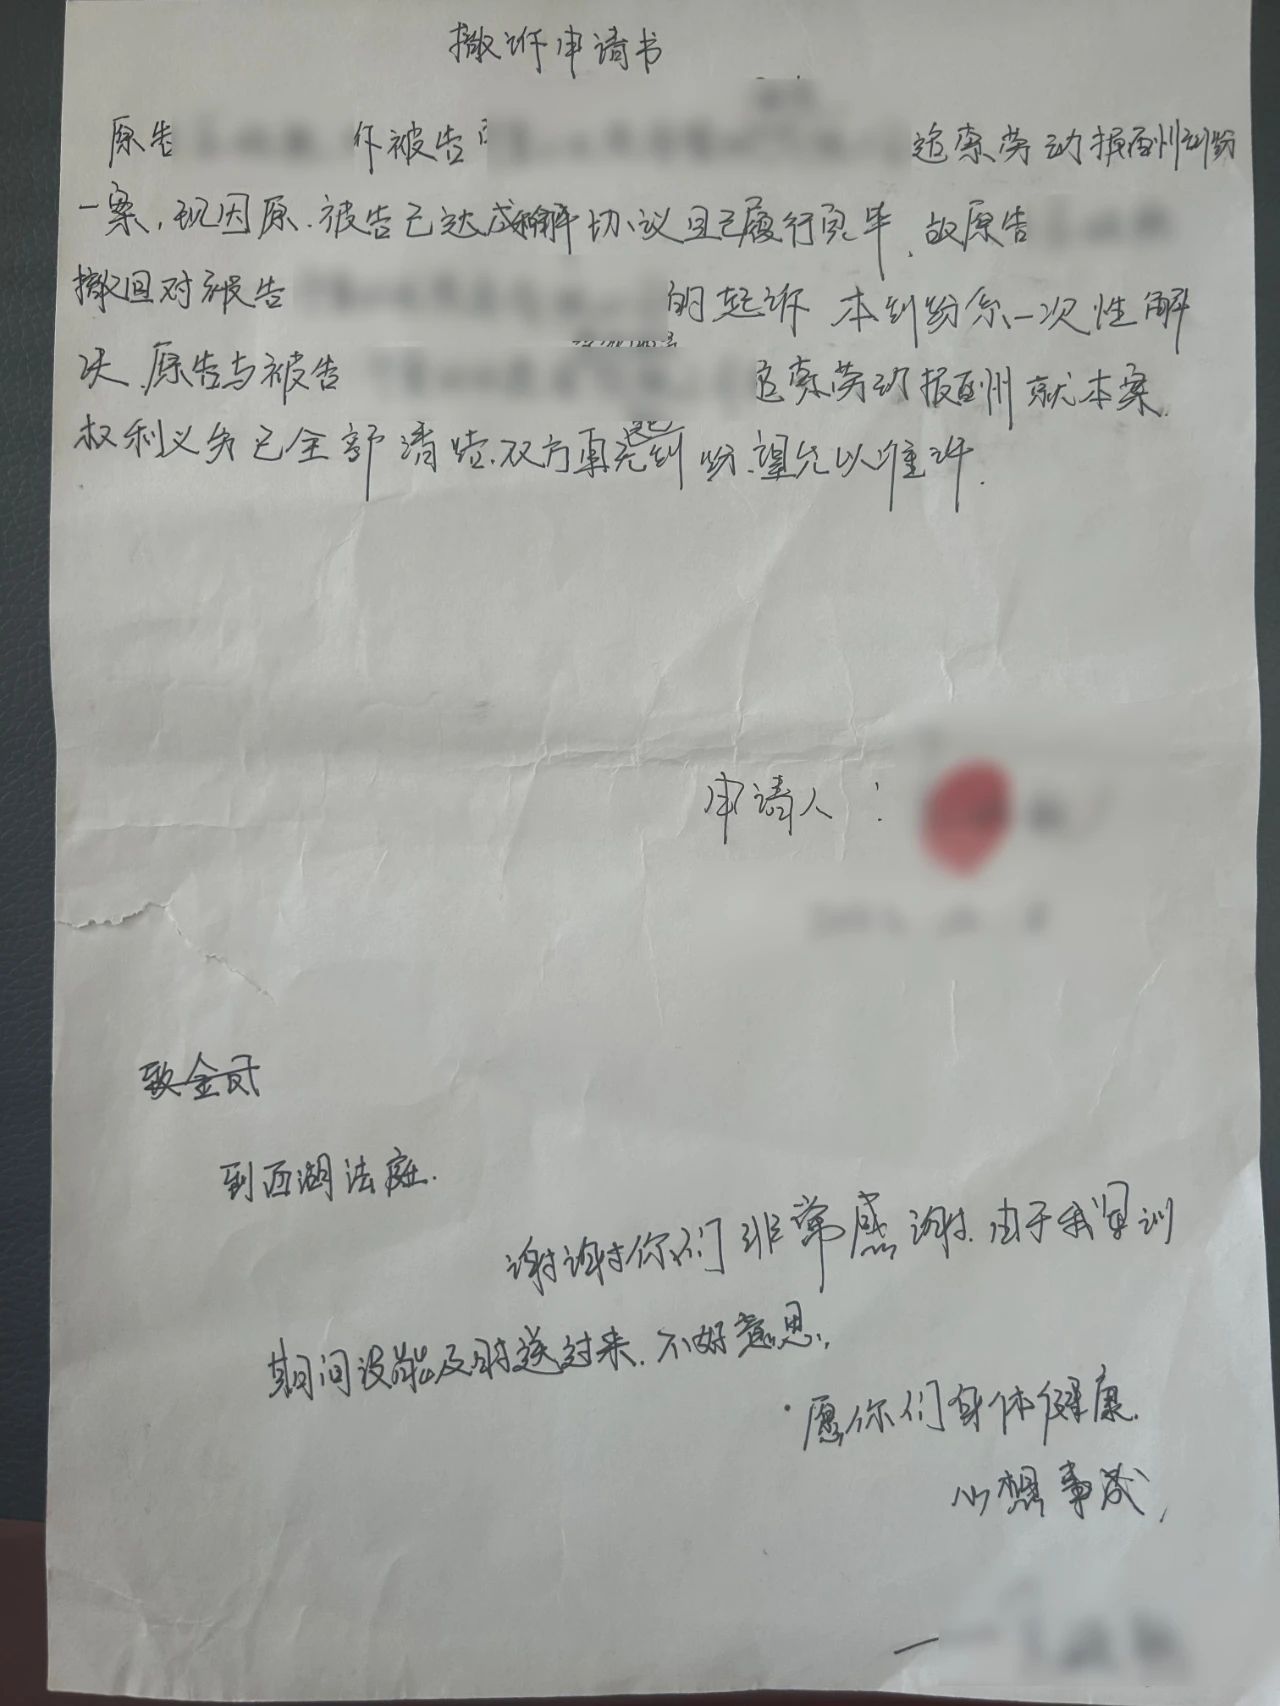 撤诉申请书
原告 诉被告 追索劳动报酬纠纷
一案，现因原、被告已达成和解协议且已履行完毕，故原告
撤回对被告 的起诉 本纠纷系一次性解
决、原告与被告 追索劳动报酬就本案
权利义务已全部清结、双方再无纠纷、望允以准许.
申请人：
到西湖法庭.
谢谢你们非常感谢.由于我军训
期间没能及时送过来.不好意思,
愿你们身体健康.
心想事成,